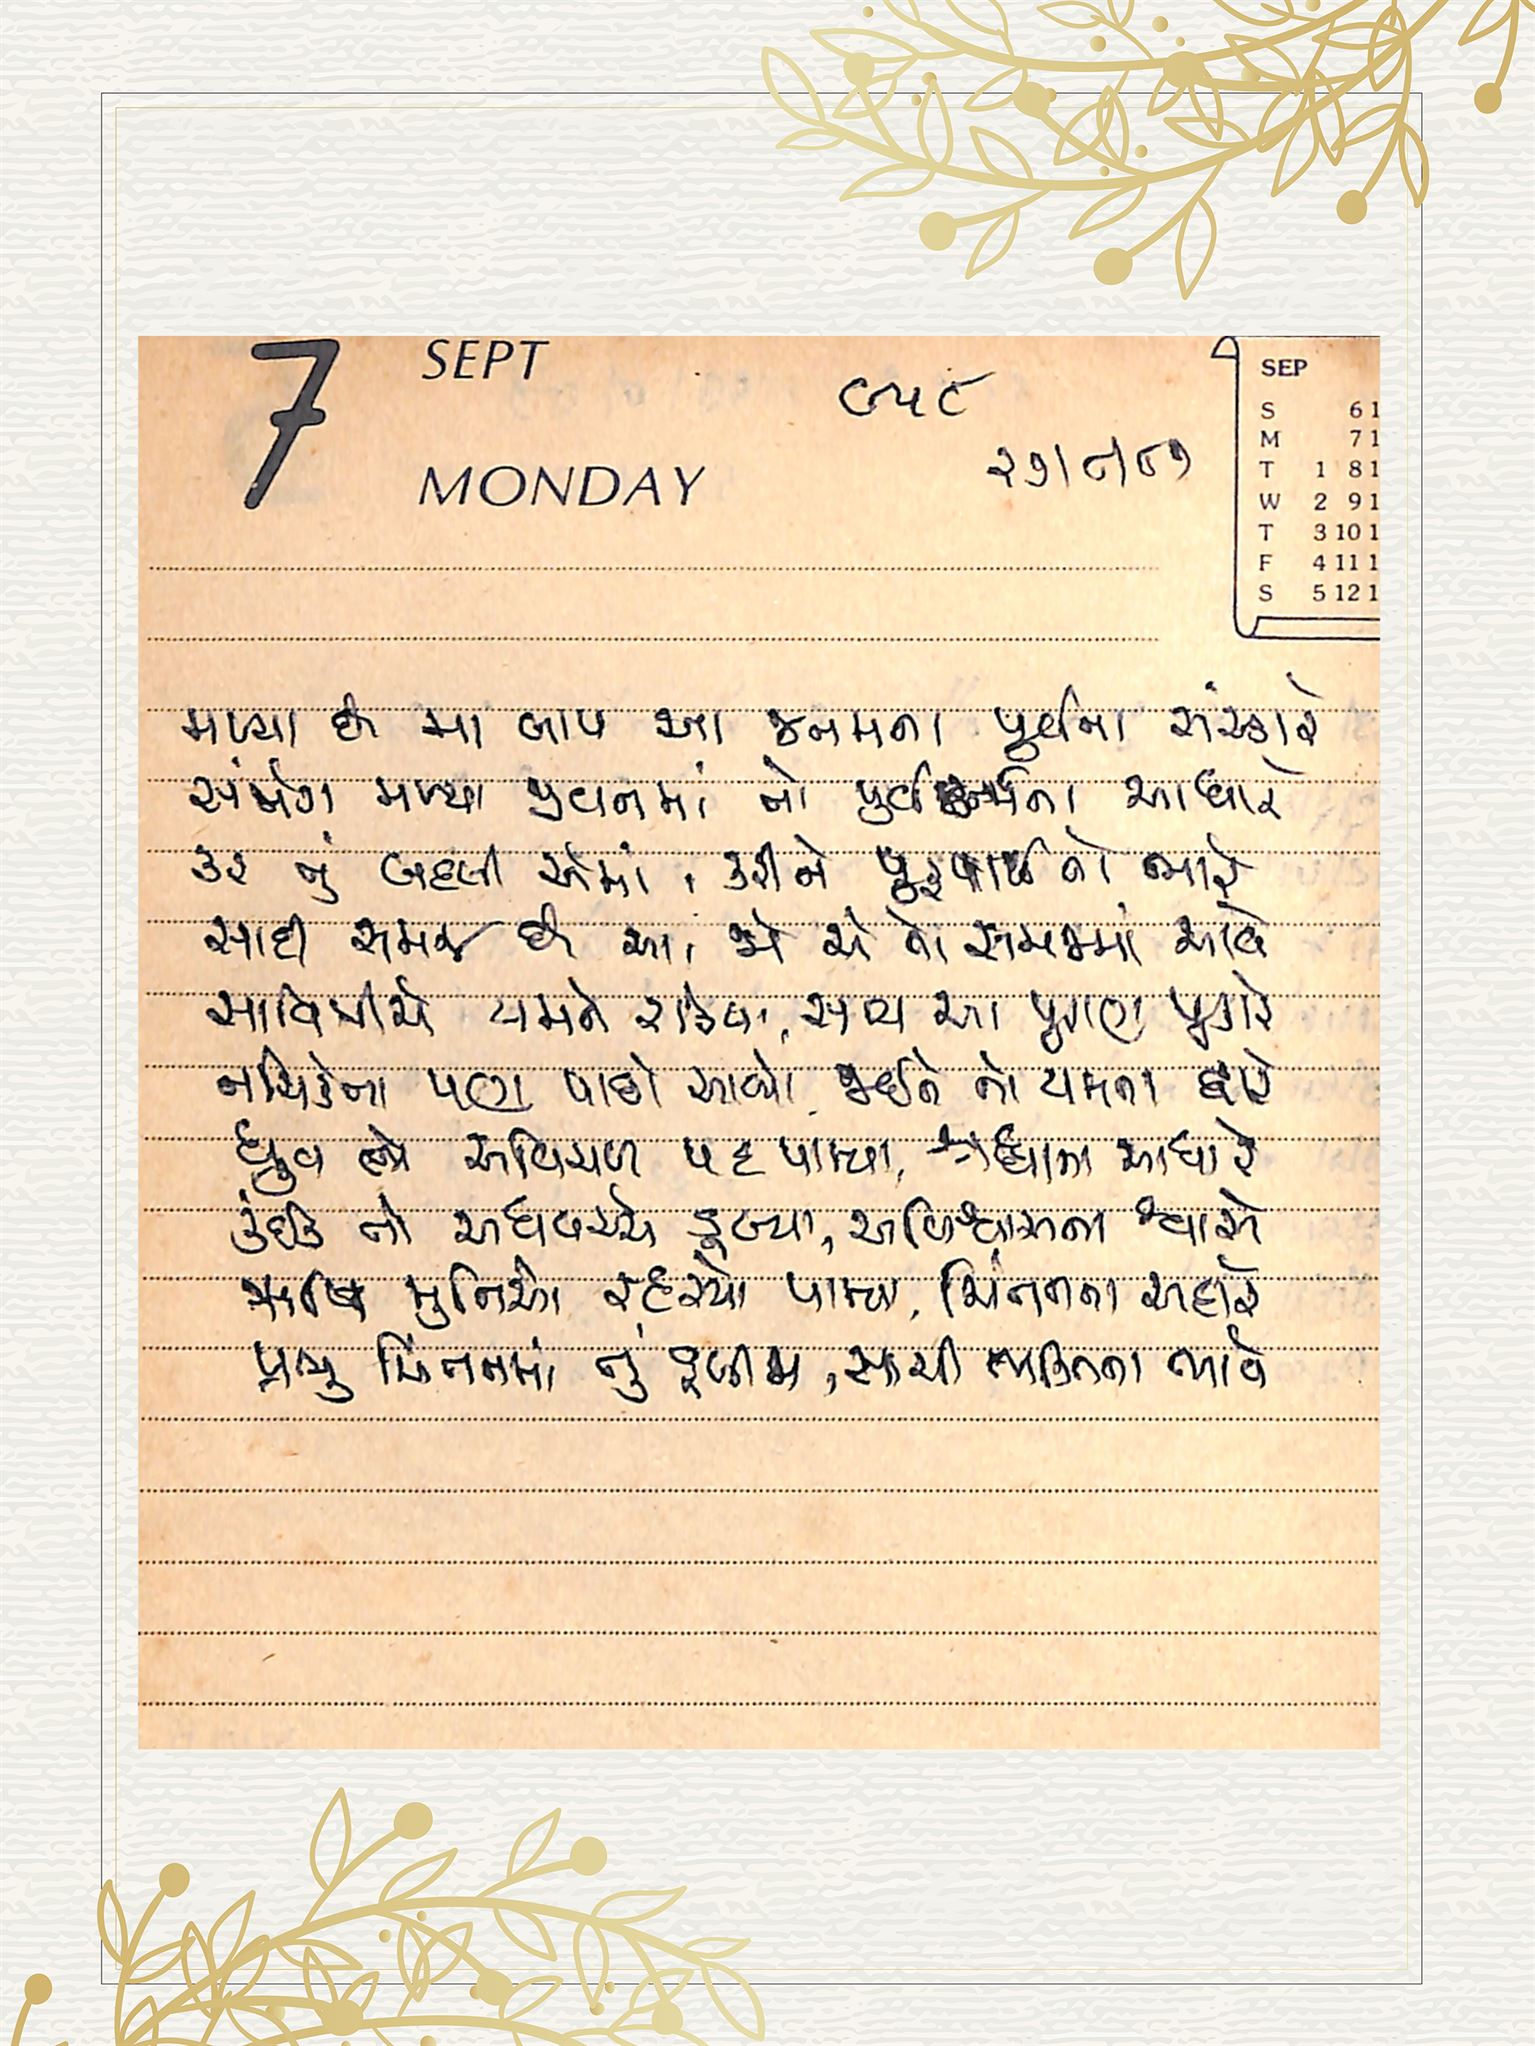 7 SEPT
MONDAY
૯૫૮
૨૭/૮/૮૭
SEP
S 6 1
M 7 1
T 1 8 1
W 2 9 1
T 3 10 1
F 4 11 1
S 5 12 1
મળ્યા છે મા બાપ આ જનમના પૂર્વના સંસ્કારે
સંજોગ મળ્યા જીવનમાં તો પૂર્વજન્મના આધારે
કર તું બદલી એમાં, કરીને પુરૂષાર્થ તો ભારે
સાદી સમજ છે આ, જો એ તો સમજમાં આવે
સાવિત્રીએ યમને રોક્યા, સત્ય આ પુરાણ પૂકારે
નચિકેતા પણ પાછો આવ્યો, જઈને તો યમના દ્વારે
ધ્રુવ તો અવિચળ પદ પામ્યા, શ્રધ્ધાના આધારે
કંઈક તો અધવચ્ચે ડૂબ્યા, અવિશ્વાસના શ્વાસે
ઋષિ મુનિઓ રહસ્યો પામ્યા, ચિંતનના સહારે
પ્રભુ ચિંતનમાં તું ડૂબીજા, સાચી ભક્તિના ભાવે